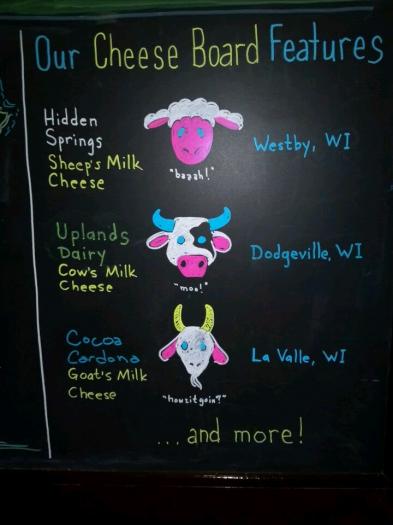 Our Cheese Board Features
Hidden
Springs
Sheep's Milk
Cheese
"baaah!"
Westby, WI
Uplands
Dairy
Cow's Milk
Cheese
"moo!"
Dodgeville, WI
Cocoa
Cardona
Goat's Milk
Cheese
"howzitgoin?"
La Valle, WI
...and more!